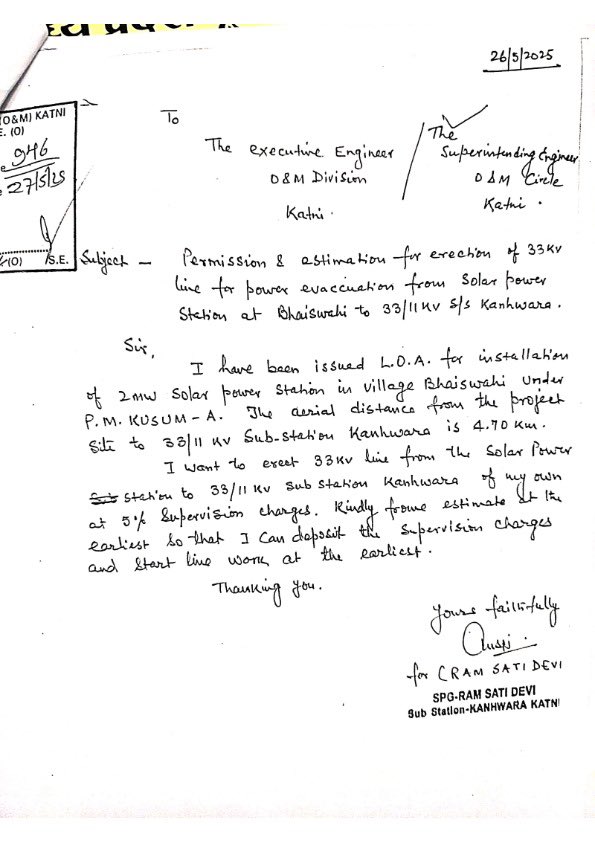 26/5/2025
(O&M) KATNI
E. (O)
946
27/5/25
(O) S.E.
To
The executive Engineer
O&M Division
Katni.
The
Superintending Engineer
O&M Circle
Katni.
Subject - Permission & estimation for erection of 33KV
line for power evaccuation from Solar power
Station at Bhaiswahi to 33/11 KV S/s Kanhwara.
Sir,
I have been issued L.O.A. for installation
of 2MW Solar power Station in village Bhaiswahi under
P.M. KUSUM-A. The aerial distance from the project
Site to 33/11 KV Sub-station Kanhwara is 4.70 Km.
I want to erect 33KV line from the Solar Power
station to 33/11 KV Sub Station Kanhwara of my own
at 5% Supervision charges. Kindly frame estimate at the
earliest so that I can deposit the Supervision charges
and Start line work at the earliest.
Thanking you.
Yours faithfully
for CRAM SATI DEVI
SPG-RAM SATI DEVI
Sub Station-KANHWARA KATNI